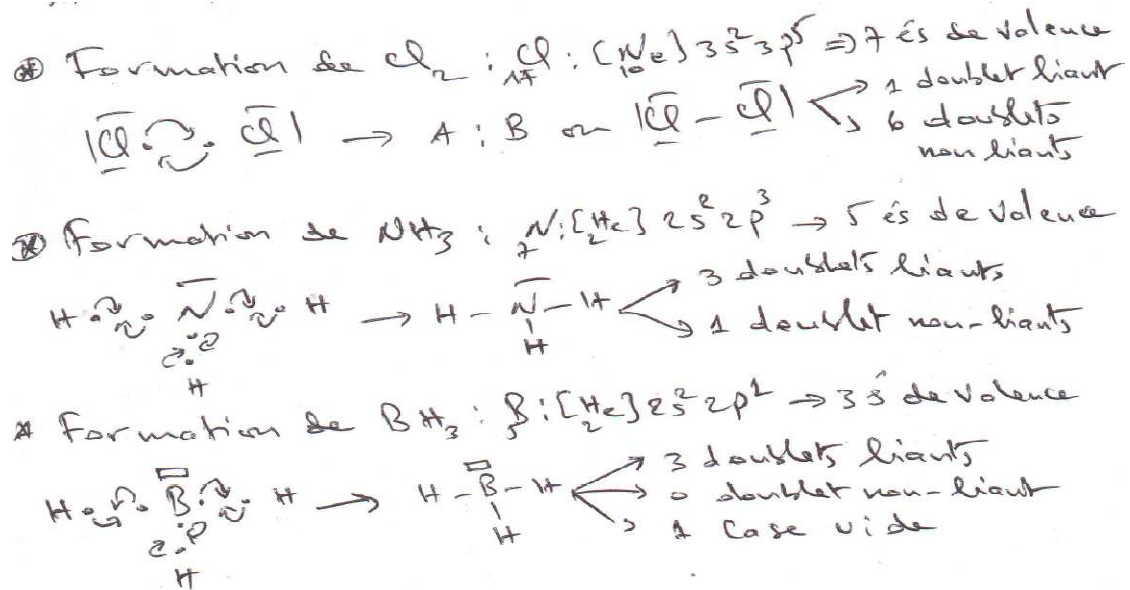 * Formation de Cl₂ : ₁₇Cl : [₁₀Ne] 3s² 3p⁵ => 7 és de valence
|Cl· ·Cl| → A : B ou |Cl - Cl| 1 doublet liant
6 doublets
non liants
* Formation de NH₃ : ₇N : [₂He] 2s² 2p³ → 5 és de valence
H · · N · · H → H - N - H 3 doublets liants
H 1 doublet non-liants
H
* Formation de BH₃ : ₅B : [₂He] 2s² 2p¹ → 3 é de valence
H · · B · · H → H - B - H 3 doublets liants
H 0 doublet non-liant
H 1 Case vide